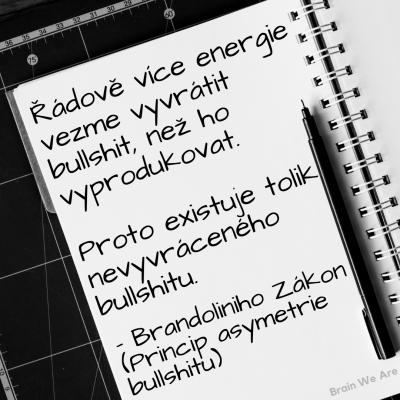 Řádově více energie
vezme vyvrátit
bullshit, než ho
vyprodukovat.
Proto existuje tolik
nevyvráceného
bullshitu.
- Brandoliniho Zákon
(Princip asymetrie
bullshitu)
Brain We Are